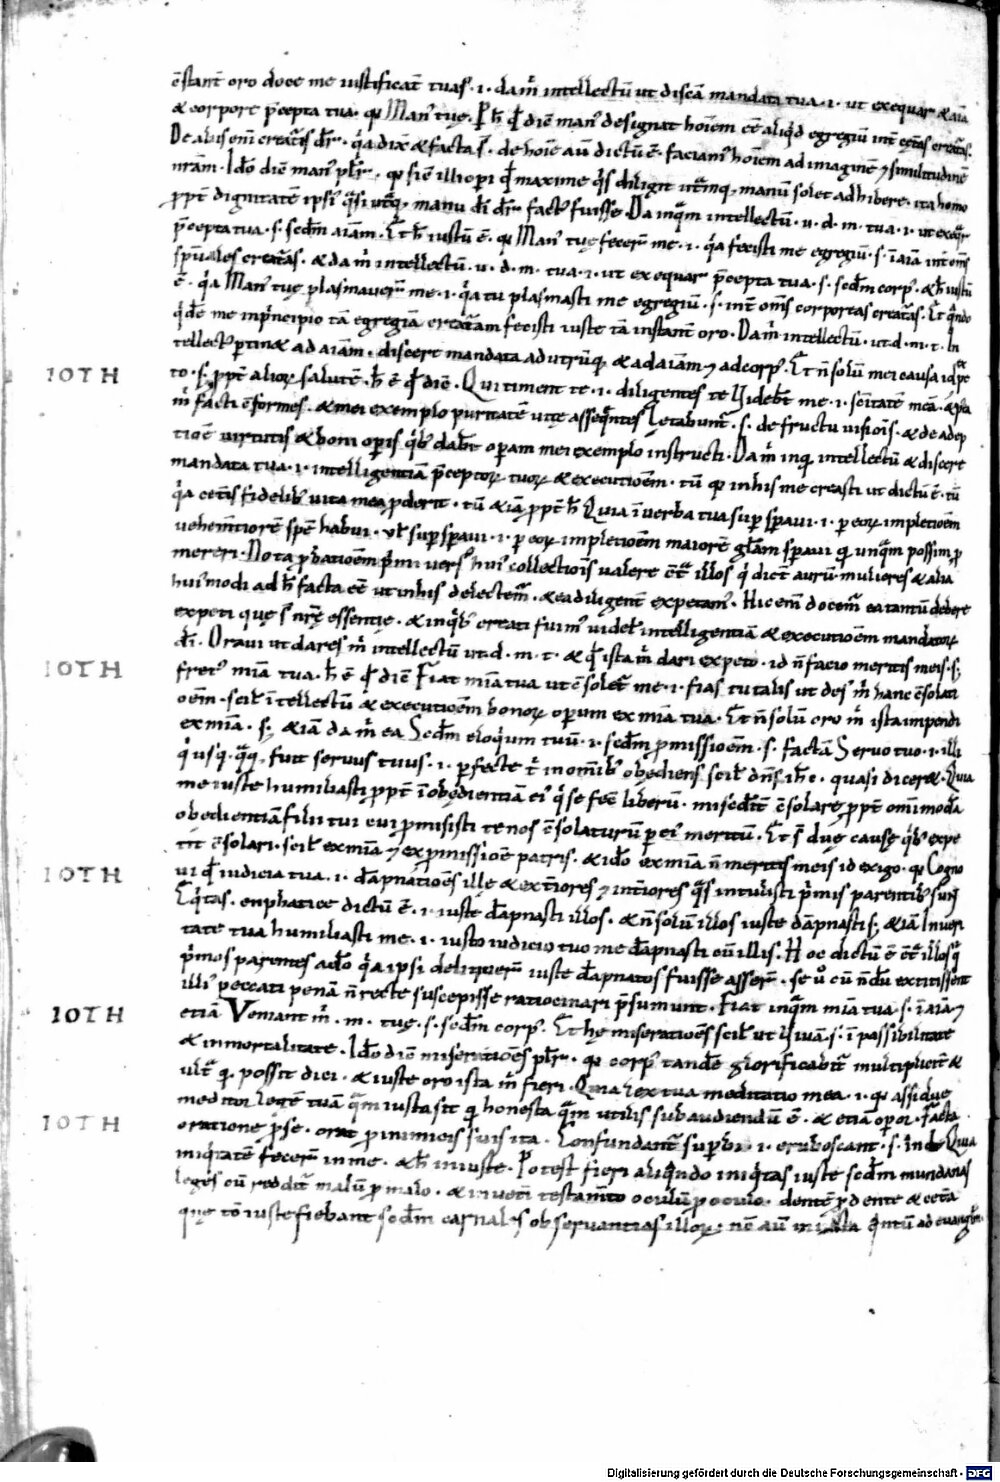 c̄stant̄ oro doce me iustificat̄ tuas · i · da m̄ intellectū ut discā mandata tua · i · ut exequar & aīa
& corpore p̄cepta tua · qɜ Man' tuę ·
De aliis enī creat̄is dr̄ · q̇a dix̄ & facta s̄ · de hoīe aū dictū ē · facian' hoīem ad imaginē ⁊ similitudinē
nr̄am · Idō diē man' plr̄ ·
p̄pt̄ dignitatē ipsi' manu dī dr̄ fact' fuisse · Da inq̄m intellectū · u · d · m · tua · i · ut exeq̄r
p̄cepta tua · s · scdm̄ aīam · Et h̄ iustū ē · qɜ Man' tuę fecer̄ me · i · q̇a fecisti me egregiū · s · ī aīā int̄ om̄s
sp̄uales creat̄as · & da m̄ intellectū · u · d · m · tua · i · ut exequar p̄cepta tua · s · scdm̄ corp' · & h̄ iustū
ē · q̇a Man' tuę plasmaver̄ me · i · q̇a tu plasmasti me egregiū · s · int̄ om̄s corporeas creat̄as · Et q̄ndo
q̇dē me in p̄ncipio tā egregiā creat̄am fecisti iuste tā instant̄ oro · Da m̄ intellectū · ut · d · m · t · In
tellect' p̄tin& ad aīam · discere mandata ad utrūq & ad aīam ⁊ ad corp' · Et n̄ solū mei causa
IOTH to · s · p̄pt̄ alioꝝ salutē · h̄ ē q̄ diē · Qui timent te · i · diligentes te Videb̄t me · i · sc̄itatē meā ·
m̄ facti ēformes · & mei exemplo puritatē vitę asseq̄ntes Letabunt̄ · s · de fructu visiois̄ · & de adep
tiōe virtutis & boni opis q̇b' dab̄t opam mei exemplo instructi · Da m̄ inq̇ intellectū & discere
mandata tua · i · intelligentiā p̄ceptoꝝ tuoꝝ & executiōem · tū qɜ in his me creasti ut dictū ē · tū
q̇a cet̄is fidelib' vita mea p̄derit · tū & iā p̄pt̄ h̄ Quia ī verba tua sup̄ sp̄avi · i · p eoꝝ impletiōem
vehem̄tiorē spē habui · vl̄ sup̄ sp̄avi · i · p eoꝝ impletiōem maiorē gl̄am sp̄avi q̇ unq̄m possim p̄
mereri · Nota p̄batiōem p̄mi vers' hui' collectiois̄ valere illos q̇ dic̄t aurū mulieres & alia
hui'modi ad h̄ facta eē ut in his delectem̄ · & ea diligent̄ expetam' · Hic em̄ docem̄ ea tantū debere
expeti que s̄ nr̄ę essentię · & in q̇b' creati fuim' videl̄ intelligentiā & executiōem mandatoꝝ
dī · Oravi ut dares m̄ intellectū ut · d · m · t · & q̄ ista m̄ dari expeto · id n̄ facio meritis meis · s;
IOTH fret' miā tua · h̄ ē q̄ diē Fiat miā tua ut c̄solet̄ me · i · fias tu talis ut des m̄ hanc c̄solati
oēm · scil̄ ītellectū & executiōem bonoꝝ opum ex miā tua · Et n̄ solū oro m̄ ista impendi
ex miā · s; & iā da m̄ ea Scdm̄ eloq̇um tuū · i · scdm̄ p̄missiōem · s · factā Servo tuo · i · illi
q̇ fuit servus tuus · i · pfecte t̄ in om̄ib' obediens scil̄ dn̄s ih̄c · quasi diceret · Quia
me iuste humiliasti p̄pt̄ īobedientiā ei' q̇ se fec̄ liberū · c̄solare p̄pt̄ om̄imodā
obedientiā filii tui cui p̄misisti te nos c̄solaturū p ei' meritū · Et s̄ due causę q̇b' expe
tit c̄solari · scil̄ ex miā ⁊ ex p̄missiōe patris · & idō ex miā n̄ meritis meis id exigo · qɜ Cogno
IOTH vi q̄ iudicia tua · i · dāpnatiōes ille & ext̄iores ⁊ int̄iores q̄s intulisti p̄mis parentib' sunt
Eq̇tas · enphatice dictū ē · i · iuste dāpnasti illos · & n̄ solū illos iuste dāpnasti s; & iā In veri
tate tua humiliasti me · i · iusto iudicio tuo me dāpnasti cū illis · Hoc dictū ē illos q̇
p̄mos parentes adō q̇a ipsi deliquer̄ iuste dāpnatos fuisse asser̄ · se v̊ cū n̄dū extitissent
IOTH illi' peccati penā n̄ recte suscepisse ratiocinari p̄sumunt · Fiat inq̄m miā tua · s · ī aīā ⁊
etiā Veniant m̄ · m · tuę · s · scdm̄ corp' · Et hę miseratiōes scil̄ ut Vivā · s · ī passibilitate
& inmortalitate · Idō diē miseratiōes plr̄ · qɜ corp' tandē glorificabit̄ multiplicit̄ &
ult̄ q̇ possit dici · & iuste oro ista m̄ fieri · Quia lex tua meditatio mea · i · qɜ assidue
meditor legē tuā q̄m iusta sit q̄ honesta q̄m utilis subaudiendū ē · & etiā opor ·
IOTH oratione p̄ se · orat p̄ inimicis suis ita · Confundant̄ supbi · i · erubescant · s · inde Quia
iniq̇tatē fecer̄ in me · & h̄ iniuste · Potest fieri aliq̄ndo iniq̇tas iuste scdm̄ mundanas
leges cū reddit̄ malū p malo · & in veti testam̄to oculū p oculo · dentē p dente & cet̄a
que tō iuste fiebant scdm̄ carnales observantias illoꝝ · ad evanḡm
Digitalisierung gefördert durch die Deutsche Forschungsgemeinschaft - DFG